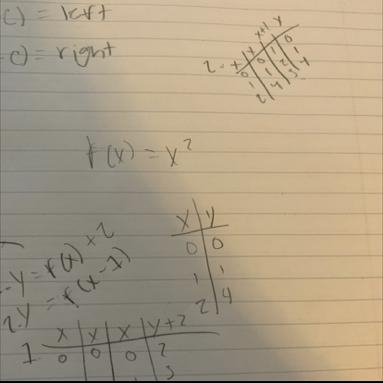 c) = left
-c) = right
2. x | y | x+1 | y
0 | 0 | 1 | 0
1 | 1 | 2 | 1
2 | 4 | 3 | 4
f(x) = x²
x | y
0 | 0
1 | 1
2 | 4
-y = f(x) + 2
2. y = f(x-1)
1. x | y | x | y+2
0 | 0 | 0 | 2
3